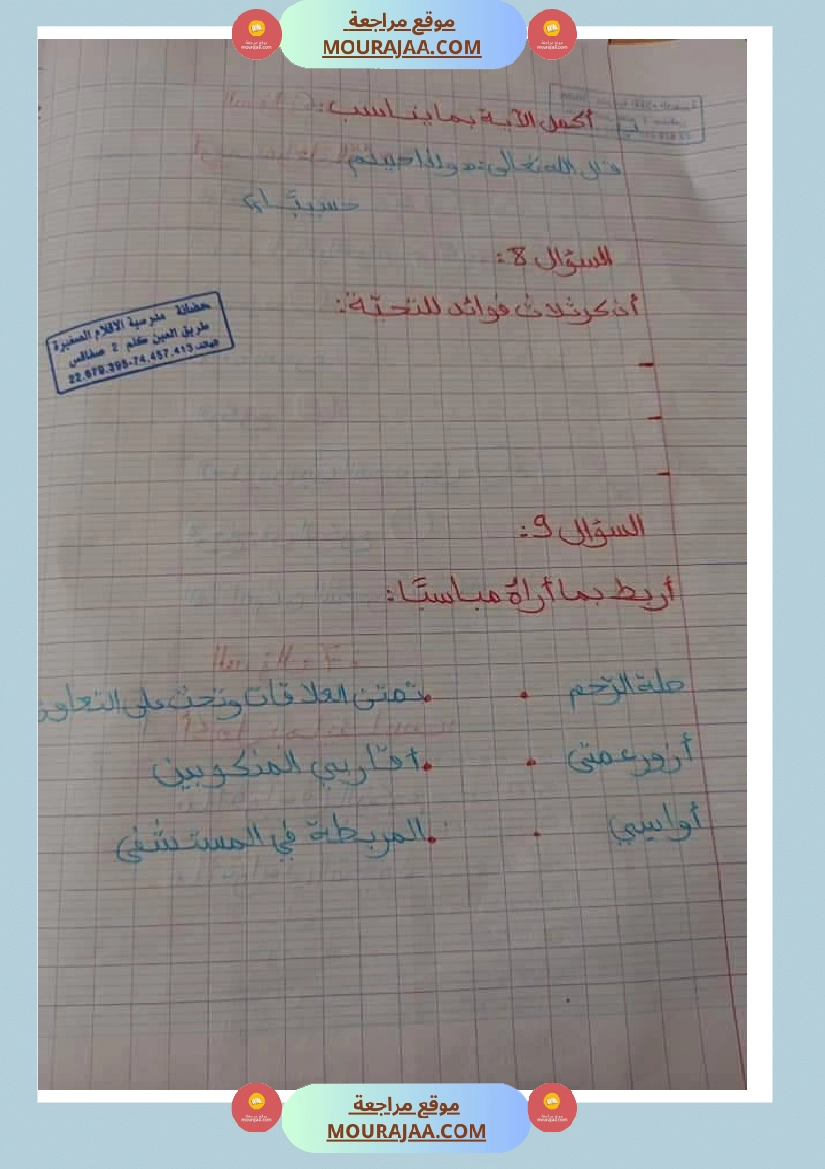 موقع مراجعة
MOURAJAA.COM
ب أكمل الآية بما يناسب:
قال الله تعالى: «وإذا حييتم
حسيبًا»
السؤال 8:
أذكر ثلاث فوائد للتحيّة:
حضانة مدرسية الاقلام الصغيرة
طريق العين كلم 2 صفاقس
الهاتف 74.457.413-22.979.395
-
-
-
السؤال 9:
أربط بما أراهُ مناسبًا:
صلة الرّحم • • تمتن العلاقات وتحث على التعاون
أزور عمتي • • أقاربي المنكوبين
أواسي • • المريضة في المستشفى
موقع مراجعة
MOURAJAA.COM